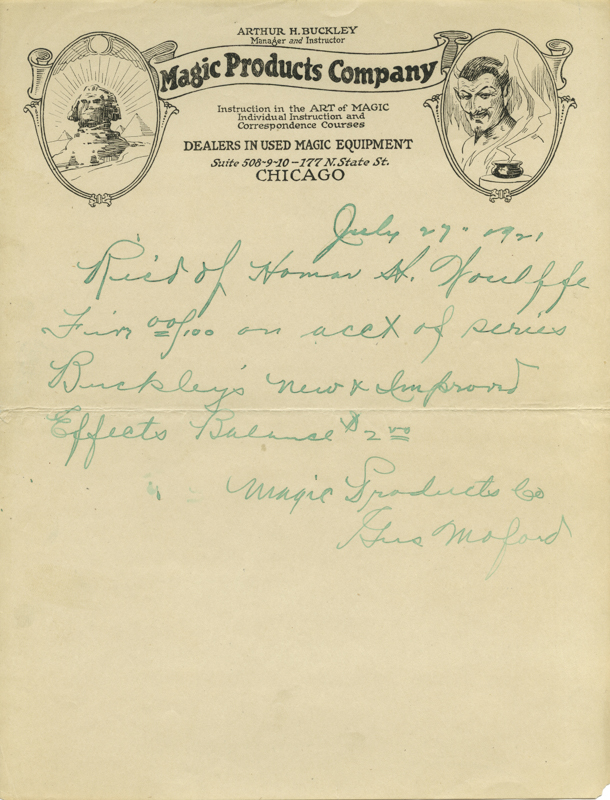 ARTHUR H. BUCKLEY
Manager and Instructor
Magic Products Company
Instruction in the ART of MAGIC
Individual Instruction and
Correspondence Courses
DEALERS IN USED MAGIC EQUIPMENT
Suite 508-9-10 - 177 N. State St.
CHICAGO
July 27" 1921
Rec'd of Homar H. Woulffe
Five 00/100 on acct of series
Buckley's new & Improved
Effects Balance $2 00
Magic Products Co
Gus Moford